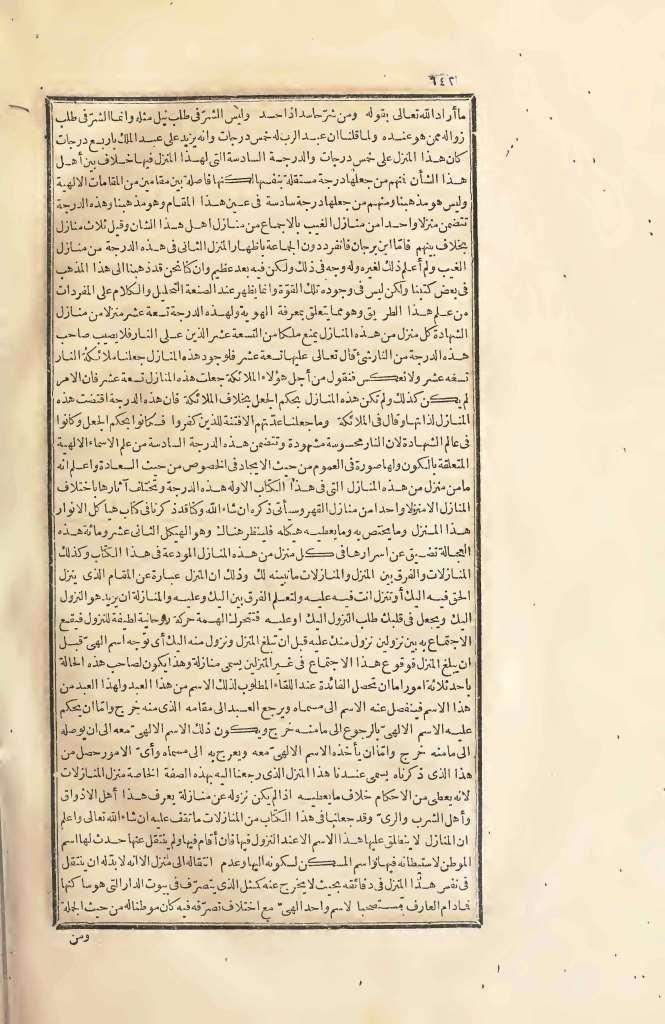 ٦٤٢
ما أراد الله تعالى بقوله ومن شر حاسد اذا حسد وليس الشر فى طلب نيل مثله وانما الشر فى طلب
زواله ممن هو عنده ولما قلنا ان عبد الرب له خمس درجات وانه يزيد على عبد الملك باربع درجات
كان هذا المنزل على خمس درجات والدرجة السادسة التى لهذا المنزل فيها خلاف بين أهل
هذا الشأن فنهم من جعلها درجة مستقلة بنفسها لكنها فاصلة بين مقامين من المقامات الالهية
وليس هو مذهبنا ومنهم من جعلها درجة سادسة فى عين هذا المقام وهو مذهبنا وهذه الدرجة
تتضمن منزلا واحدا من منازل الغيب بالاجماع من منازل اهل هذا الشان وقيل ثلاث منازل
بخلاف بينهم فاما ابن برجان فانفرد دون الجماعة باظهار المنزل الثانى فى هذه الدرجة من منازل
الغيب ولم أعلم ذلك لغيره وله وجه فى ذلك ولكن فيه بعد عظيم وان كنا نحن قد ذهبنا الى هذا المذهب
فى بعض كتبنا ولكن ليس فى وجوده تلك القوة وانما يظهر عند الصنعة التحليل والكلام على المفردات
من علم هذا الطريق وهو مما يتعلق بمعرفة الهوية ولهذه الدرجة تسعة عشر منزلا من منازل
الشهادة كل منزل من هذه المنازل يمنع ملكا من التسعة عشر الذين على النار فلا يصيب صاحب
هذه الدرجة من النار شئ قال تعالى عليها تسعة عشر فلوجود هذه المنازل جعلنا ملائكة النار
تسعة عشر ولا نعكس فنقول من أجل هؤلاء الملائكة جعلت هذه المنازل تسعة عشر فان الامر
لم يكن كذلك ولم تكن هذه المنازل بحكم الجعل بخلاف الملائكة فان هذه الدرجة اقتضت هذه
المنازل لذاتها وقال فى الملائكة وما جعلنا عدتهم الا فتنة للذين كفروا فكانوا بحكم الجعل وكانوا
فى عالم الشهادة لان النار محسوسة مشهودة وتتضمن هذه الدرجة السادسة من علم الاسماء الالهية
المتعلقة بالكون ولها صورة فى العموم من حيث الايجاد فى الخصوص من حيث السعادة واعلم انه
ما من منزل من هذه المنازل التى فى هذا الكتاب الا وله هذه الدرجة وتختلف آثارها باختلاف
المنازل الا منزلا واحدا من منازل القهر وسيأتى ذكره ان شاء الله وكنا قد ذكرنا فى كتاب هياكل الانوار
هذا المنزل وما يختص به وما يعطيه هيكله فلينظر هناك وهو الهيكل الثانى عشر ومائة هذه
العجالة تضيق عن اسرارها فى كل منزل من هذه المنازل المودعة فى هذا الكتاب وكذلك
المنازلات والفرق بين المنزل والمنازلات ما نبينه لك وذلك ان المنزل عبارة عن المقام الذى ينزل
الحق فيه اليك أو تنزل انت فيه عليه ولتعلم الفرق بين اليك وعليه والمنازلة ان يريد هو النزول
اليك ويجعل فى قلبك طلب النزول اليه او عليه فتتحرك الهمة حركة روحانية لطيفة للنزول فيقع
الاجتماع به بين نزولين نزول منك عليه قبل ان تبلغ المنزل ونزول منه اليك أى توجه اسم الهى قبل
ان يبلغ المنزل فوقوع هذا الاجتماع فى غير المنزلين يسمى منازلة وهذا يكون لصاحب هذه الحالة
باحد ثلاثة امور اما ان تحصل الفائدة عند اللقاء المطلوب لذلك الاسم من هذا العبد ولهذا العبد من
هذا الاسم فينفصل عنه الاسم الى مسماه ويرجع العبد الى مقامه الذى منه خرج واما ان يحكم
عليه الاسم الالهى بالرجوع الى ما منه خرج ويكون ذلك الاسم الالهى معه الى ان يوصله
الى ما منه خرج واما ان يأخذه الاسم الالهى معه ويعرج به الى مسماه وأى الامور حصل من
هذا الذى ذكرناه يسمى عندنا هذا المنزل الذى رجعنا اليه بهذه الصفة الخاصة منزل المنازلات
لانه يعطى من الاحكام خلاف ما يعطيه اذا لم يكن نزوله عن منازلة يعرف هذا أهل الاذواق
وأهل الشرب والرى وقد جعلنا فى هذا الكتاب من المنازلات ما تقف عليه ان شاء الله تعالى واعلم
ان المنازل لا ينطلق عليها هذا الاسم الا عند النزول فيها فان أقام فيها ولم ينتقل عنها حدث لها اسم
الموطن لاستيطانه فيها واسم المسكن لسكونه اليها وعدم انتقاله الى منزل الا انه لا بد له ان ينتقل
فى نفس هذا المنزل فى دقائقه بحيث لا يخرج عنه كمثل الذى يتصرف فى بيوت الدار التى هو ساكنها
فما دام العارف مستصحبا لاسم واحد الهى مع اختلاف تصرفه فيه كان موطنا له من حيث الجملة
ومن